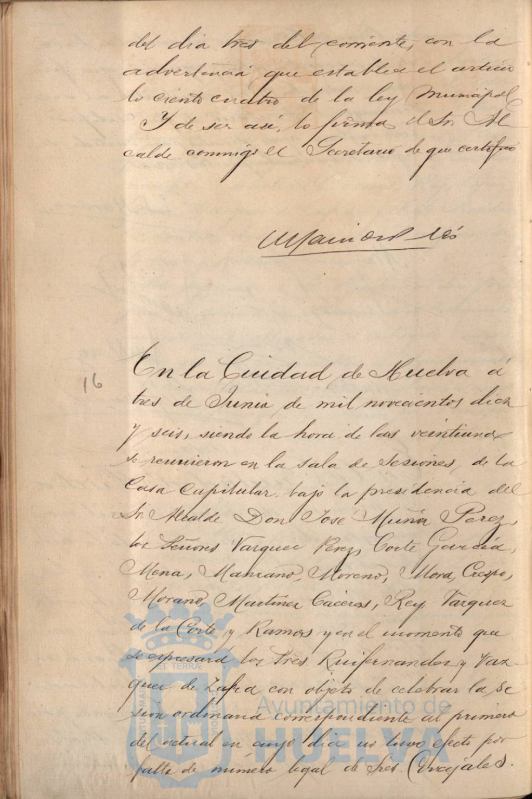 del dia tres del corriente, con la
advertencia que establece el articu
lo ciento cuatro de la ley Municipal
Y de ser asi, lo firma el Sr. Al
calde conmigo el Secretario de que certifico
16
En la Ciudad de Huelva á
tres de Junio de mil novecientos diez
y seis, siendo la hora de las veintiuna
se reunieron en la sala de Sesiones, de la
Casa Capitular bajo la presidencia del
Sr. Alcalde Don José Muñoz Perez,
los Señores Vazquez Perez, Corte Garcia,
Mena, Manzano, Moreno, Mora, Crespo,
Morano, Martinez Caceres, Rey Vazquez
de la Corte y Ramos y en el momento que
se expresará los Sres Ruifernandez y Vaz
quez de Zafra con objeto de celebrar la Se
sion ordinaria correspondiente al primero
del actual en cuyo dia no tuvo efecto por
falta de número legal de Sres. Concejales.
Ayuntamiento de
HUELVA